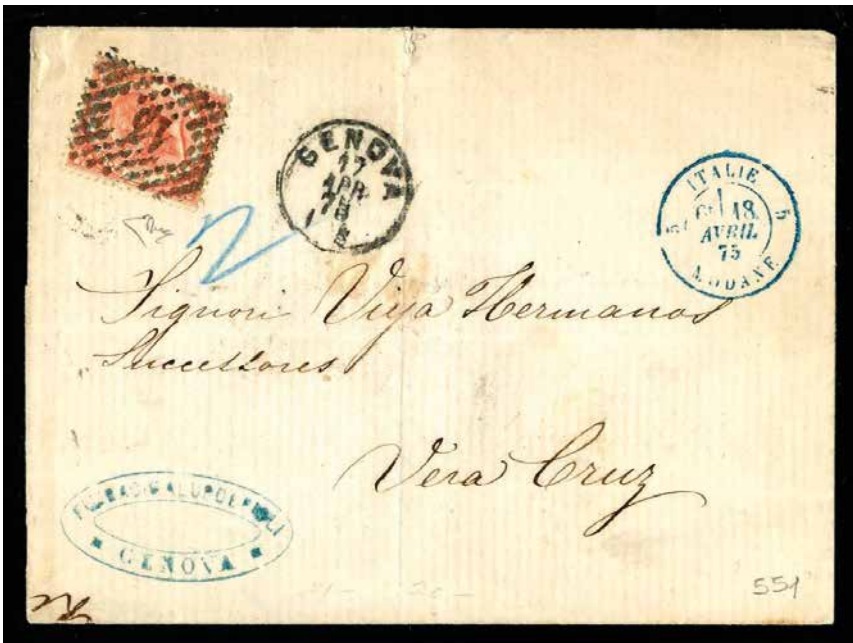 GENOVA
17
APR
75
ITALIE
5 5
18
AVRIL
75
MODANE
2
Signori Vija Hermanos
Successores
Vera Cruz
GENOVA
551